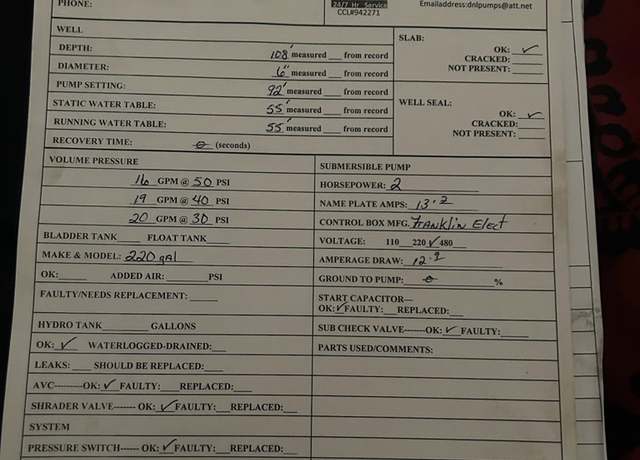 PHONE:
24/7 Hr Service
CCL#942271
Emailaddress:dnlpumps@att.net
WELL
DEPTH: 108' measured ___ from record
DIAMETER: 6" measured ___ from record
PUMP SETTING: 92' measured ___ from record
STATIC WATER TABLE: 55' measured ___ from record
RUNNING WATER TABLE: 55' measured ___ from record
RECOVERY TIME: 0 (seconds)
SLAB:
OK: ✓
CRACKED: ___
NOT PRESENT: ___
WELL SEAL:
OK: ✓
CRACKED: ___
NOT PRESENT: ___
VOLUME PRESSURE
16 GPM @ 50 PSI
19 GPM @ 40 PSI
20 GPM @ 30 PSI
BLADDER TANK ___ FLOAT TANK ___
MAKE & MODEL: 220 gal
OK: ___ ADDED AIR: ___ PSI
FAULTY/NEEDS REPLACEMENT: ___
HYDRO TANK ___ GALLONS
OK: ✓ WATERLOGGED-DRAINED: ___
LEAKS: ___ SHOULD BE REPLACED: ___
AVC---------OK: ✓ FAULTY: ___ REPLACED: ___
SHRADER VALVE------- OK: ✓ FAULTY: ___ REPLACED: ___
SYSTEM
PRESSURE SWITCH------ OK: ✓ FAULTY: ___ REPLACED: ___
SUBMERSIBLE PUMP
HORSEPOWER: 2
NAME PLATE AMPS: 13.2
CONTROL BOX MFG. Franklin Elect
VOLTAGE: 110 ___ 220 ✓ 480 ___
AMPERAGE DRAW: 12.9
GROUND TO PUMP: 0 %
START CAPACITOR---
OK: ✓ FAULTY: ___ REPLACED: ___
SUB CHECK VALVE------OK: ✓ FAULTY: ___
PARTS USED/COMMENTS: